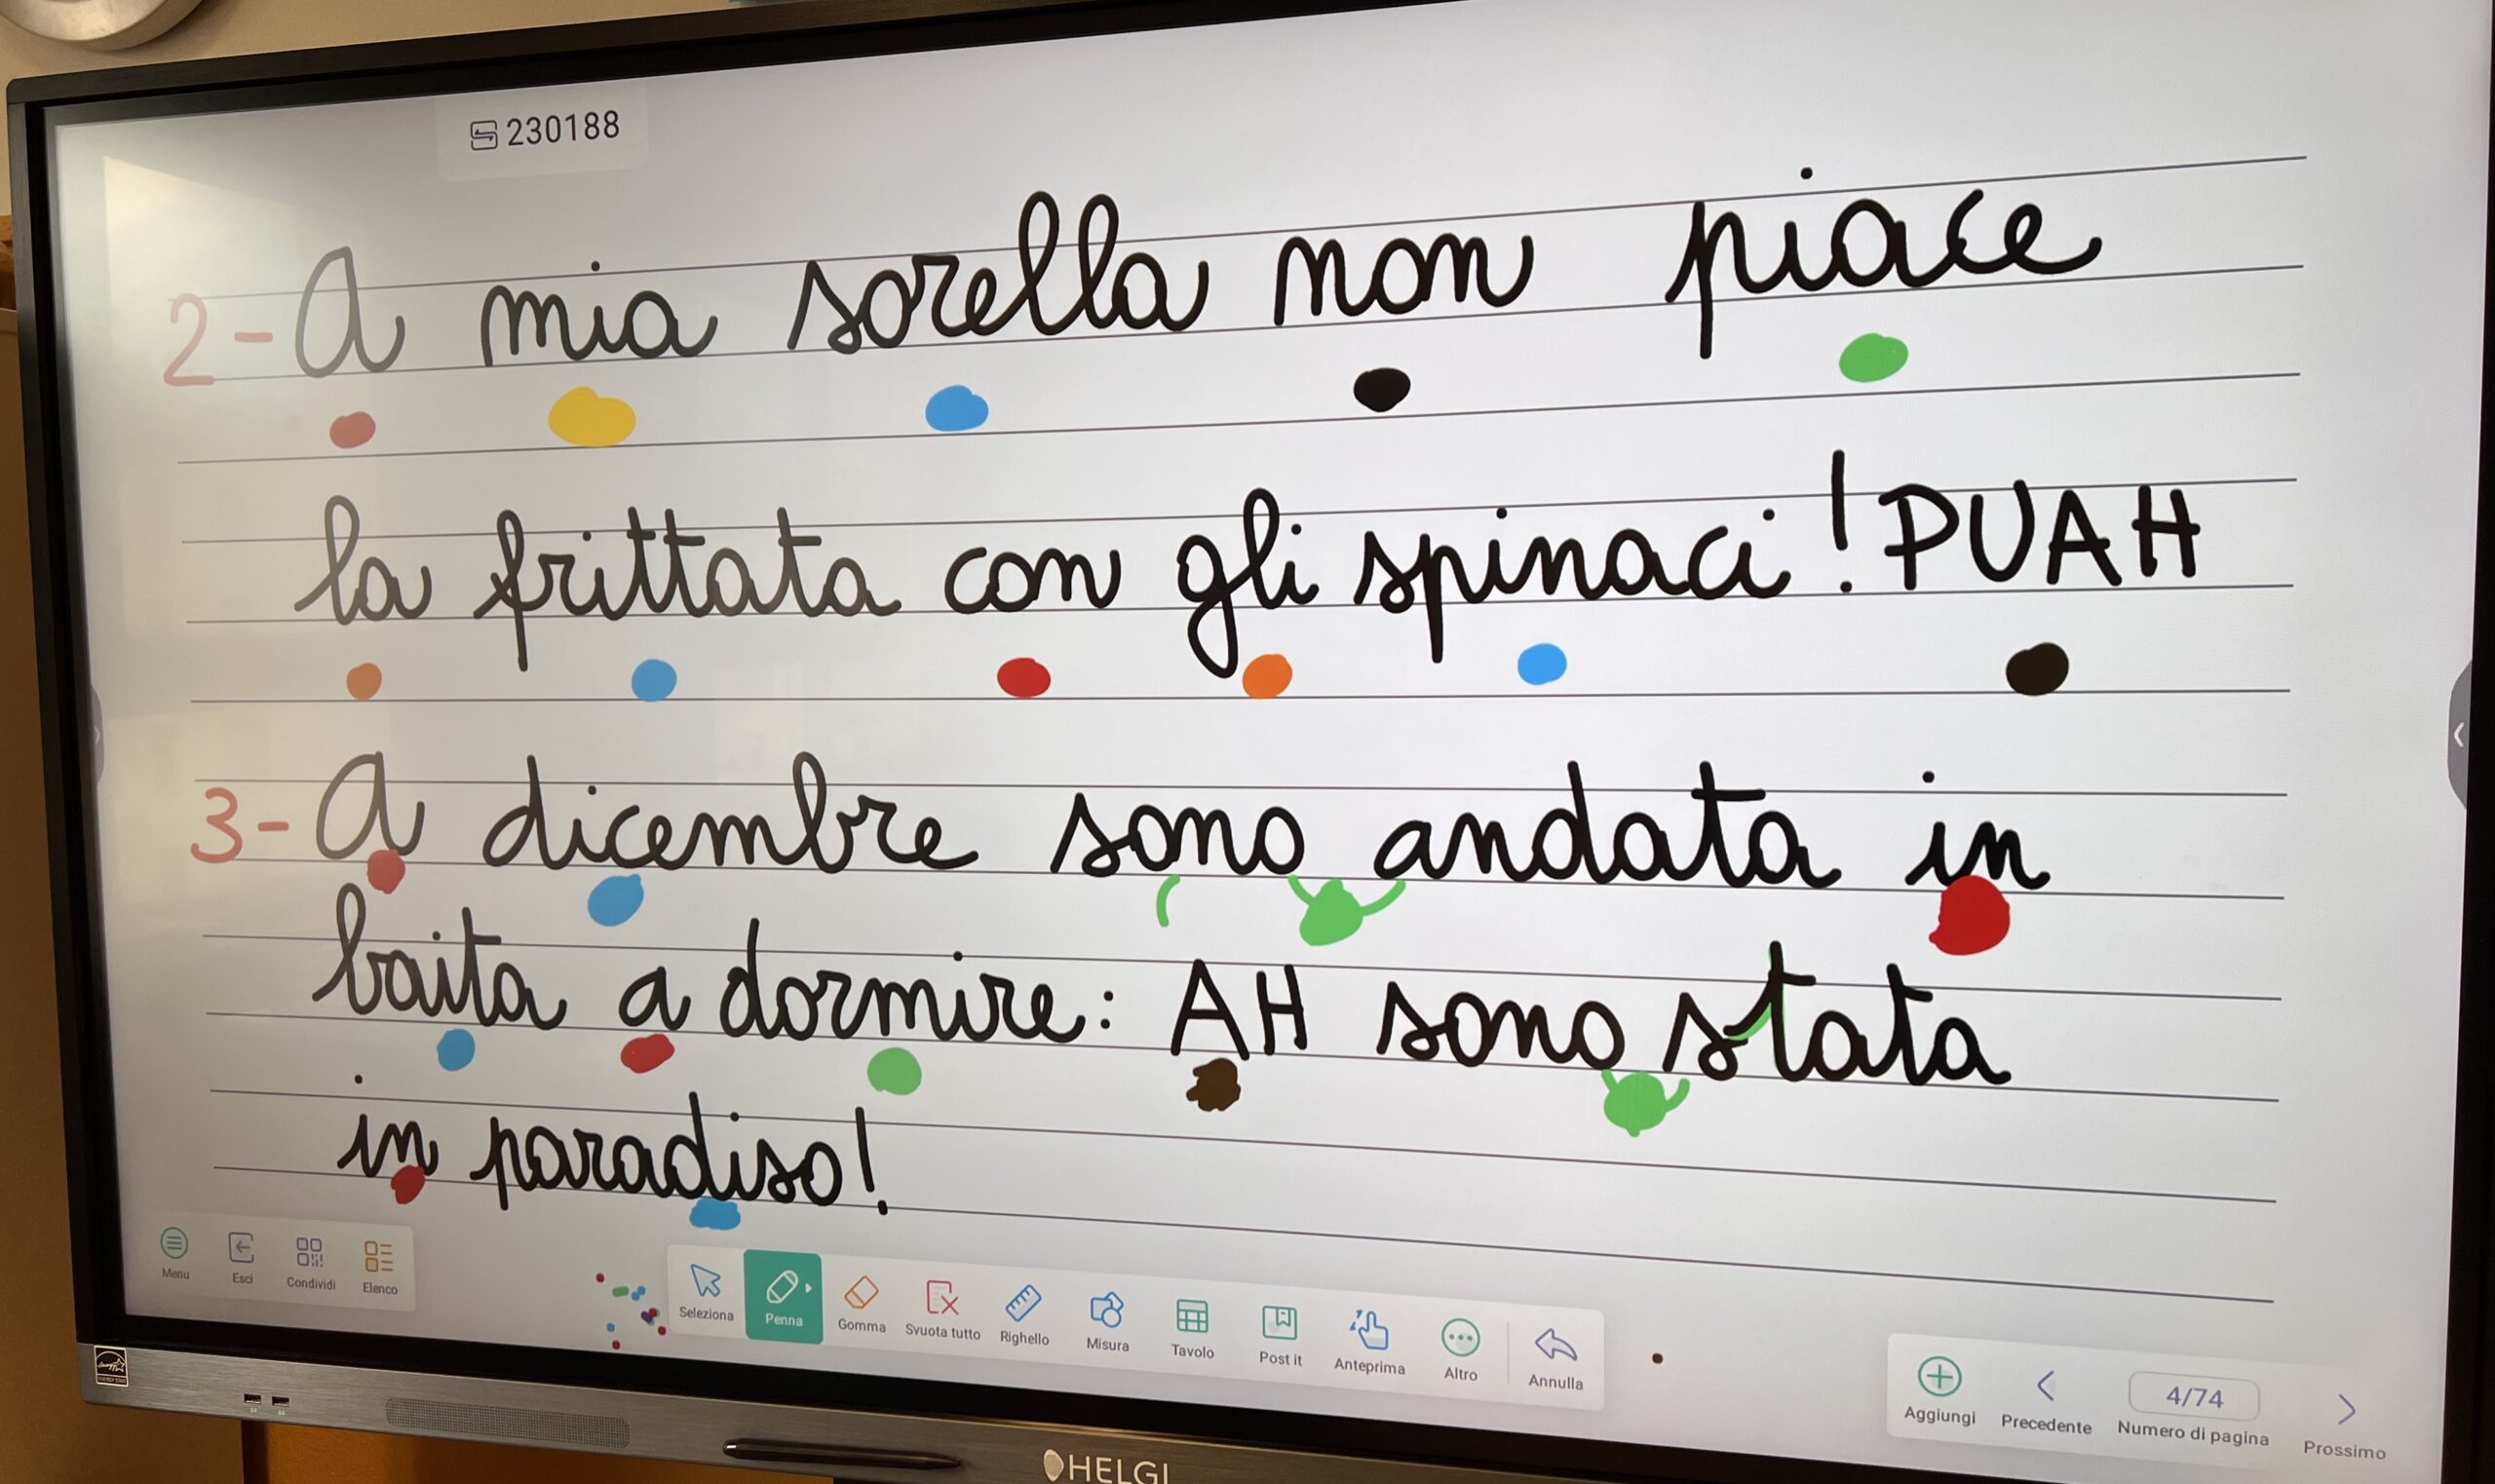 230188
2- A mia sorella non piace
la frittata con gli spinaci! PUAH
3- A dicembre sono andata in
baita a dormire: AH sono stata
in paradiso!
Menu Esci Condividi Elenco
Seleziona Penna Gomma Svuota tutto Righello Misura Tavolo Post it Anteprima Altro Annulla
Aggiungi Precedente 4/74 Numero di pagina Prossimo
HELGI